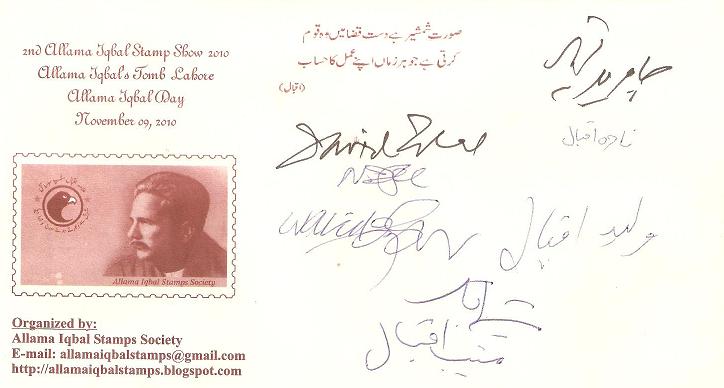 2nd Allama Iqbal Stamp Show 2010
Allama Iqbal's Tomb Lahore
Allama Iqbal Day
November 09, 2010
Allama Iqbal Stamps Society
Organized by:
Allama Iqbal Stamps Society
E-mail: allamaiqbalstamps@gmail.com
http://allamaiqbalstamps.blogspot.com
صورت شمشیر ہے دست قضا میں وہ قوم
کرتی ہے جو ہر زماں اپنے عمل کا حساب
(اقبال)
جاوید اقبال
ناصرہ اقبال
ولید اقبال
منیب اقبال